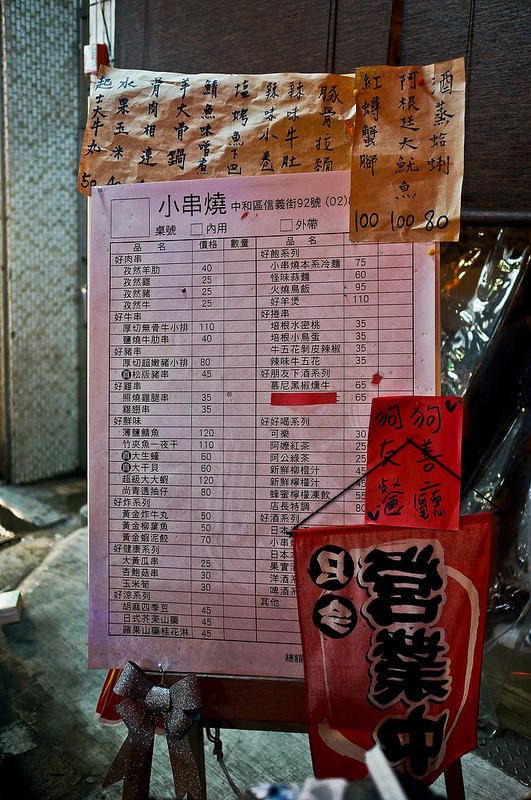 酒蒸蛤蜊 80
阿根廷大魷魚 100
紅蟳蟹腳 100
豚骨拉麵
辣味牛肚
辣味小卷
塩烤魚下巴
鯖魚味噌煮
羊大骨鍋
骨肉相連
水果玉米
起士大牛丸 50
小串燒 中和區信義街92號 (02)
桌號 □內用 □外帶
品名 價格 數量
好肉串
孜然羊肋 40
孜然雞 25
孜然豬 25
孜然牛 25
好牛串
厚切無骨牛小排 110
鹽燒牛肋串 40
好豬串
厚切超嫩豬小排 80
松版豬串 45
好雞串
照燒雞腿串 35
雞翅串 35
好鮮味
薄鹽鯖魚 120
竹夾魚一夜干 110
大生蠔 60
大干貝 60
超級大大蝦 120
尚青透抽仔 80
好炸系列
黃金炸牛丸 50
黃金柳葉魚 50
黃金蝦泥餃 70
好健康系列
大黃瓜串 25
杏鮑菇串 30
玉米筍 30
好涼系列
胡麻四季豆 45
日式芥茉山藥 45
蘋果山藥桂花淋 45
品名
好飽系列
小串燒本系冷麵 75
怪味蒜麵 60
火燒鳥飯 95
好羊煲 110
好捲串
培根水蜜桃 35
培根小鳥蛋 35
牛五花剝皮辣椒 35
辣味牛五花 35
好朋友下酒系列
慕尼黑椒燻牛 65
65
好好喝系列
可樂 30
阿嬤紅茶 25
阿公綠茶 25
新鮮柳橙汁
新鮮檸檬汁
蜂蜜檸檬凍飲
店長特調
好酒系列
日本
小串燒
日本
果實
洋酒
啤酒
其他
總額
狗狗友善餐廳
日日
營業中